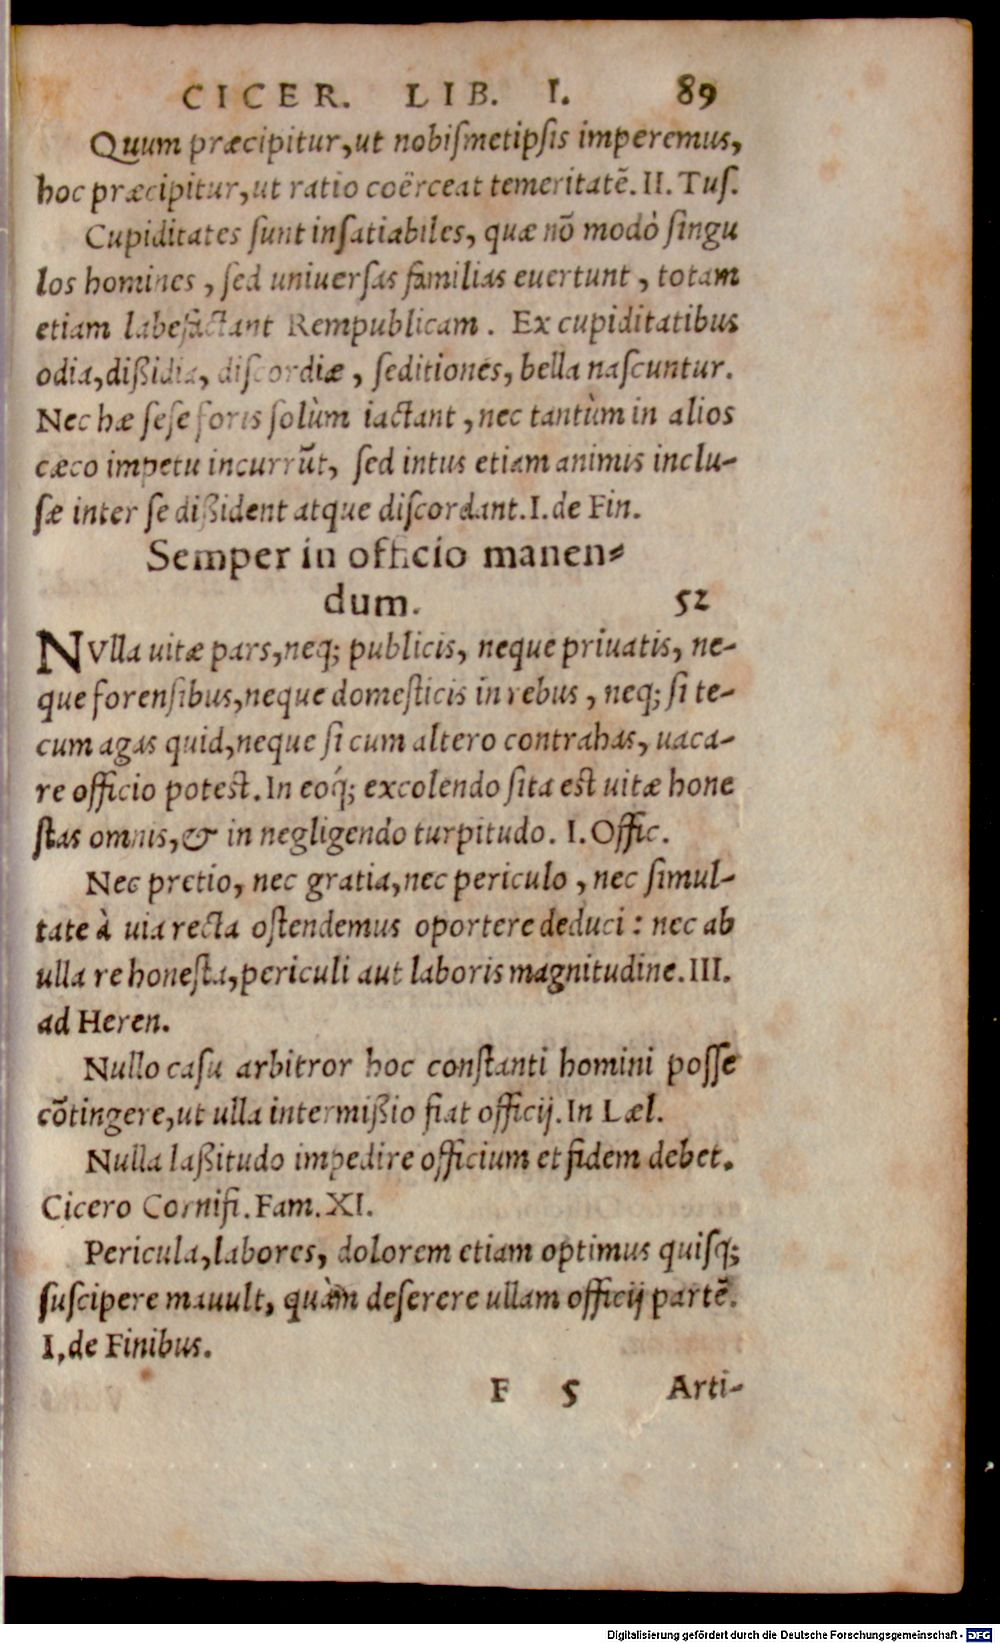 CICER. LIB. I. 89
Quum præcipitur, ut nobiſmetipſis imperemus,
hoc præcipitur, ut ratio coërceat temeritatē. II. Tuſ.
Cupiditates ſunt inſatiabiles, quæ nō modò ſingu
los homines, ſed uniuerſas familias euertunt, totam
etiam labefactant Rempublicam. Ex cupiditatibus
odia, dißidia, diſcordiæ, ſeditiones, bella naſcuntur.
Nec hæ ſeſe foris ſolùm iactant, nec tantùm in alios
cæco impetu incurrūt, ſed intus etiam animis inclu-
ſæ inter ſe dißident atque diſcordant. I. de Fin.
Semper in officio manen-
dum. 52
NVlla uitæ pars, neq; publicis, neque priuatis, ne-
que forenſibus, neque domeſticis in rebus, neq; ſi te-
cum agas quid, neque ſi cum altero contrahas, uaca-
re officio poteſt. In eoq́; excolendo ſita eſt uitæ hone
ſtas omnis, & in negligendo turpitudo. I. Offic.
Nec pretio, nec gratia, nec periculo, nec ſimul-
tate à uia recta oſtendemus oportere deduci: nec ab
ulla re honeſta, periculi aut laboris magnitudine. III.
ad Heren.
Nullo caſu arbitror hoc conſtanti homini poſſe
cōtingere, ut ulla intermißio fiat officij. In Læl.
Nulla laßitudo impedire officium et fidem debet.
Cicero Cornifi. Fam. XI.
Pericula, labores, dolorem etiam optimus quiſq;
ſuſcipere mauult, quàm deſerere ullam officij partē.
I, de Finibus.
F 5 Arti-
Digitalisierung gefördert durch die Deutsche Forschungsgemeinschaft - DFG